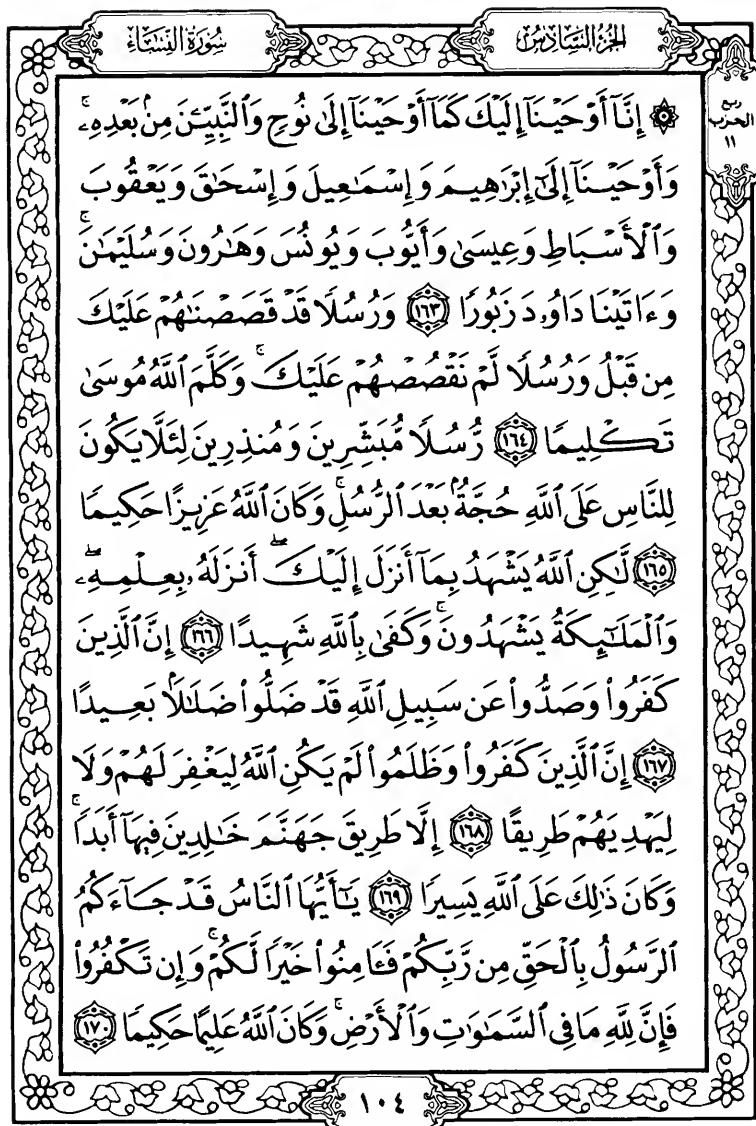 سُورَةُ النِّسَاءِ
الجُزْءُ السَّادِسُ
ربع
الحزب
١١
۞ إِنَّآ أَوْحَيْنَآ إِلَيْكَ كَمَآ أَوْحَيْنَآ إِلَىٰ نُوحٍ وَٱلنَّبِيِّـۧنَ مِنۢ بَعْدِهِۦۚ
وَأَوْحَيْنَآ إِلَىٰٓ إِبْرَٰهِيمَ وَإِسْمَٰعِيلَ وَإِسْحَٰقَ وَيَعْقُوبَ
وَٱلْأَسْبَاطِ وَعِيسَىٰ وَأَيُّوبَ وَيُونُسَ وَهَٰرُونَ وَسُلَيْمَٰنَۚ
وَءَاتَيْنَا دَاوُۥدَ زَبُورًا ١٦٣ وَرُسُلًا قَدْ قَصَصْنَٰهُمْ عَلَيْكَ
مِن قَبْلُ وَرُسُلًا لَّمْ نَقْصُصْهُمْ عَلَيْكَۚ وَكَلَّمَ ٱللَّهُ مُوسَىٰ
تَكْلِيمًا ١٦٤ رُّسُلًا مُّبَشِّرِينَ وَمُنذِرِينَ لِئَلَّا يَكُونَ
لِلنَّاسِ عَلَى ٱللَّهِ حُجَّةٌۢ بَعْدَ ٱلرُّسُلِۚ وَكَانَ ٱللَّهُ عَزِيزًا حَكِيمًا
١٦٥ لَّٰكِنِ ٱللَّهُ يَشْهَدُ بِمَآ أَنزَلَ إِلَيْكَۖ أَنزَلَهُۥ بِعِلْمِهِۦۖ
وَٱلْمَلَٰٓئِكَةُ يَشْهَدُونَۚ وَكَفَىٰ بِٱللَّهِ شَهِيدًا ١٦٦ إِنَّ ٱلَّذِينَ
كَفَرُوا۟ وَصَدُّوا۟ عَن سَبِيلِ ٱللَّهِ قَدْ ضَلُّوا۟ ضَلَٰلًۢا بَعِيدًا
١٦٧ إِنَّ ٱلَّذِينَ كَفَرُوا۟ وَظَلَمُوا۟ لَمْ يَكُنِ ٱللَّهُ لِيَغْفِرَ لَهُمْ وَلَا
لِيَهْدِيَهُمْ طَرِيقًا ١٦٨ إِلَّا طَرِيقَ جَهَنَّمَ خَٰلِدِينَ فِيهَآ أَبَدًاۚ
وَكَانَ ذَٰلِكَ عَلَى ٱللَّهِ يَسِيرًا ١٦٩ يَٰٓأَيُّهَا ٱلنَّاسُ قَدْ جَآءَكُمُ
ٱلرَّسُولُ بِٱلْحَقِّ مِن رَّبِّكُمْ فَـَٔامِنُوا۟ خَيْرًا لَّكُمْۚ وَإِن تَكْفُرُوا۟
فَإِنَّ لِلَّهِ مَا فِى ٱلسَّمَٰوَٰتِ وَٱلْأَرْضِۚ وَكَانَ ٱللَّهُ عَلِيمًا حَكِيمًا ١٧٠
١٠٤